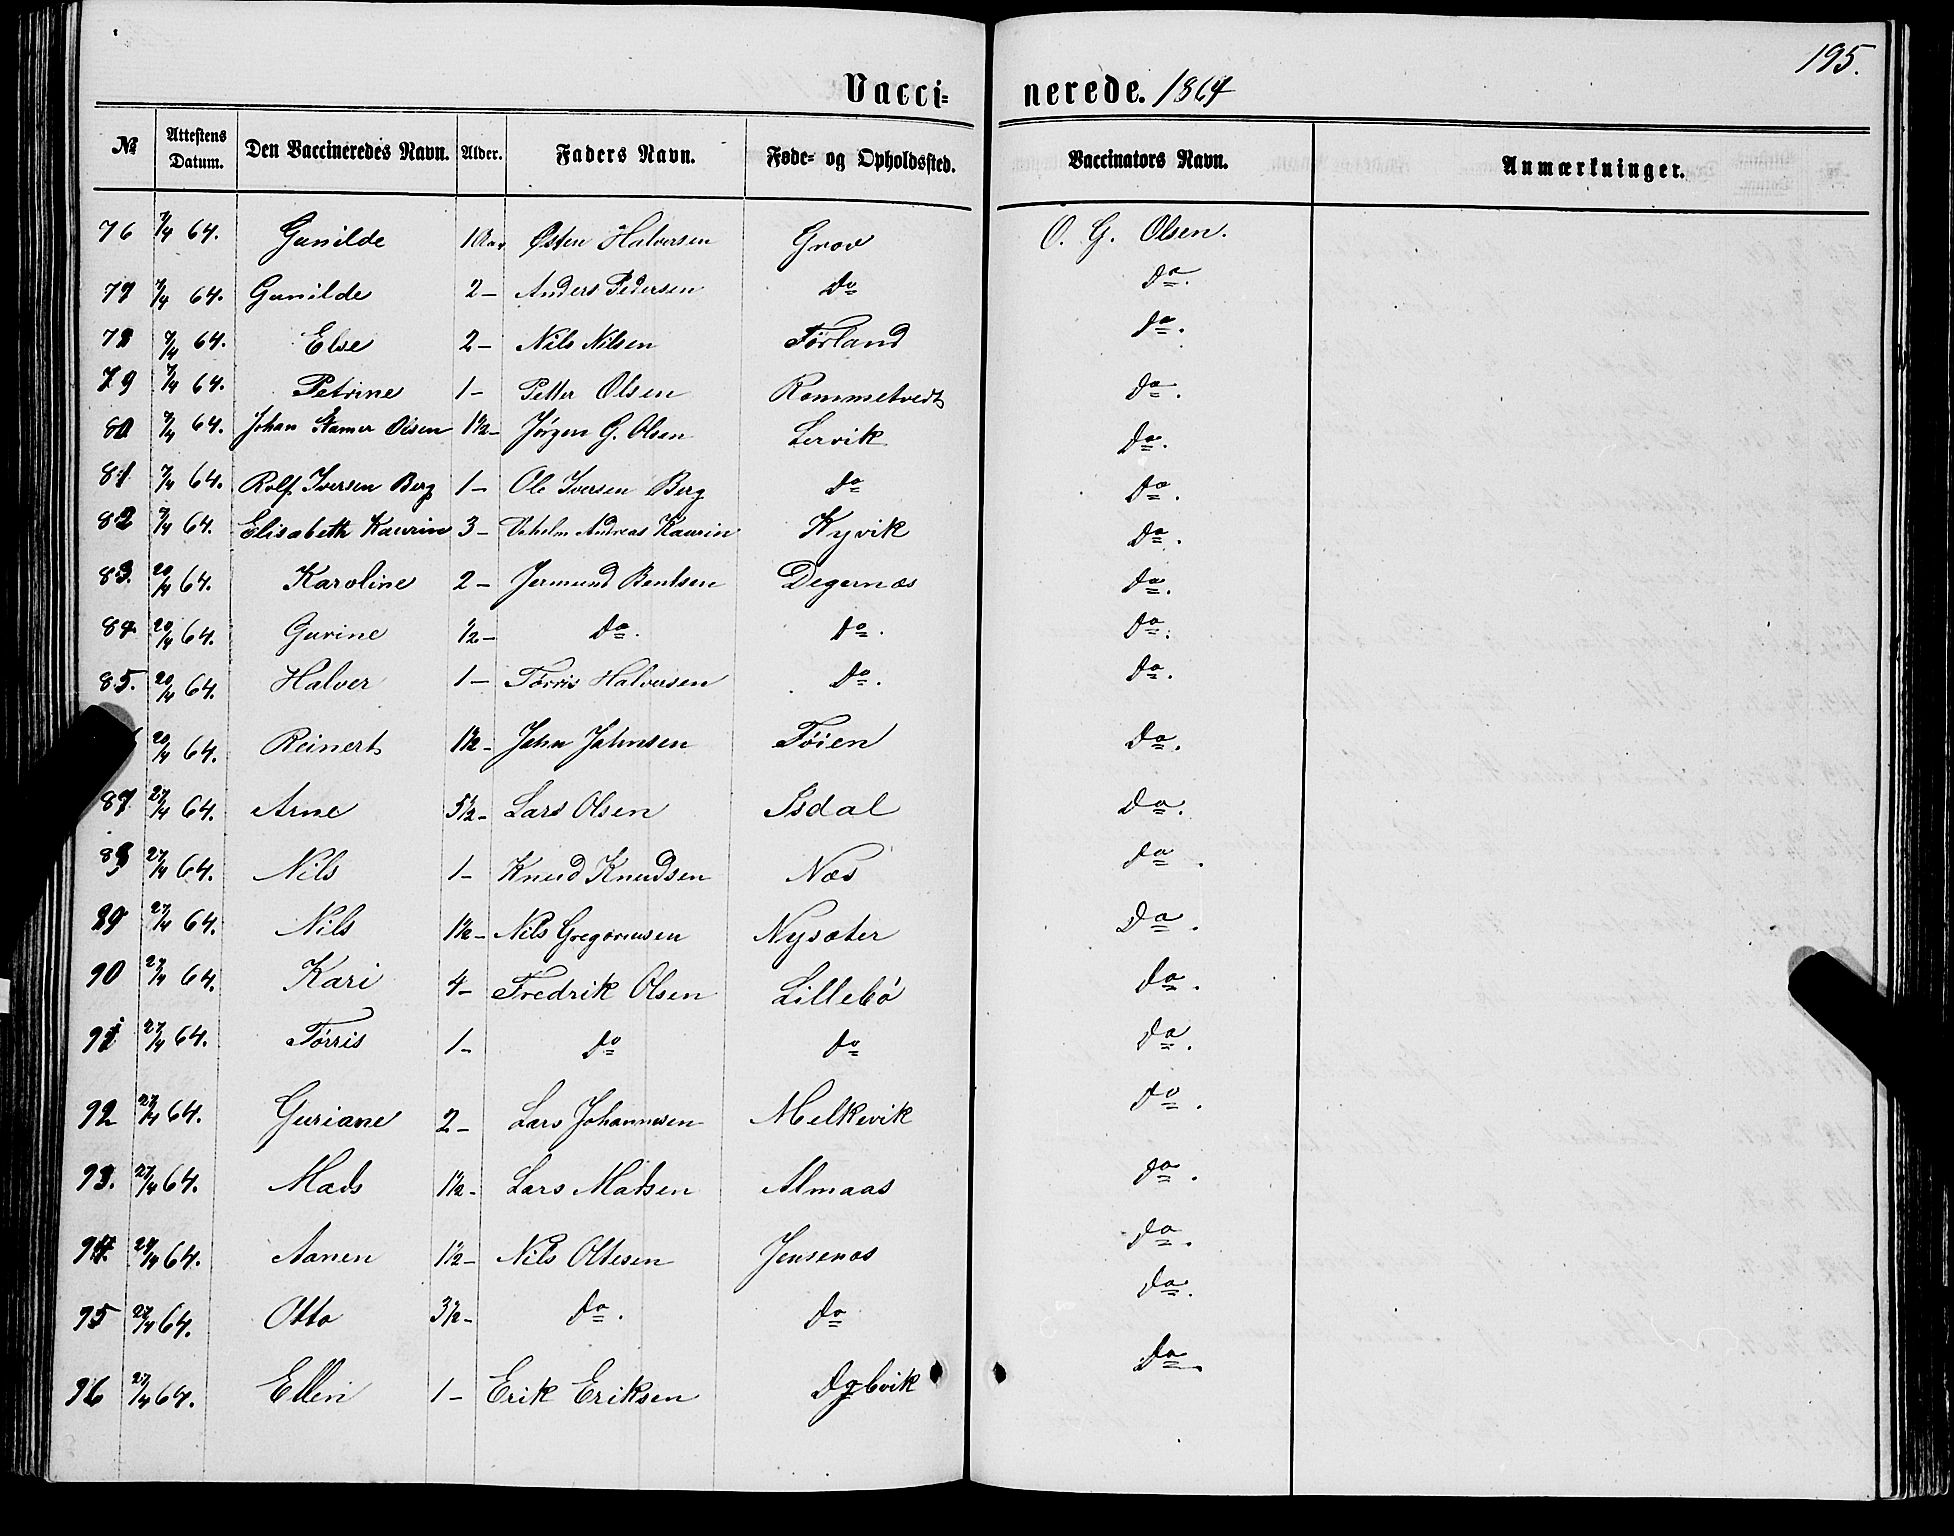 195.
Vacci= nerede. 1864
No Attestens Datum. Den Vaccineredes Navn. Alder. Faders Navn. Føde= og Opholdssted. Vaccinators Navn. Anmærkninger.
76 7/4 64. Gunilde 1 Østen Halversen Grov O. G. Olsen.
77 7/4 64. Gunilde 2 - Anders Pedersen Do Do.
78 7/4 64. Else 2 - Nils Nilsen Førland Do.
79 7/4 64. Petrine 1 - Petter Olsen Rommetvedt Do.
80 7/4 64. Johan Olsen 1½ - Jørgen G. Olsen Lervik Do.
81 7/4 64. Rolf Iversen Berg 1 - Ole Iversen Berg Do Do.
82 7/4 64. Elisabeth Kaurin 3 - Andreas Kaurin Kyvik Do.
83. 20/4 64. Karoline 2 - Jermund Bentsen Degernæs Do.
84 20/4 64. Gurine ½ - Do. Do. Do.
85. 20/4 64. Halver 1 - Tørris Halversen Do. Do.
20/4 64. Reinert 1½ - John Johnsen Tøien Do.
87 27/4 64. Arne 5½ - Lars Olsen Isdal Do.
88 27/4 64. Nils 1 - Knud Knudsen Næs Do.
89 27/4 64. Nils 1½ - Nils Gregoriusen Nysæter Do.
90 27/4 64. Kari 4 - Fredrik Olsen Lillebø Do.
91 27/4 64. Tørris 1 - Do Do Do.
92 27/4 64. Guriane 2 - Lars Johannesen Melkevik Do.
93. 27/4 64. Mads 1½ - Lars Madsen Almaas Do.
94. 27/4 64. Aanen 1½ - Nils Ottesen Jensenæs Do.
95 27/4 64. Otto 3½ - Do. Do Do.
96 27/4 64. Ellen 1 - Erik Eriksen Do.